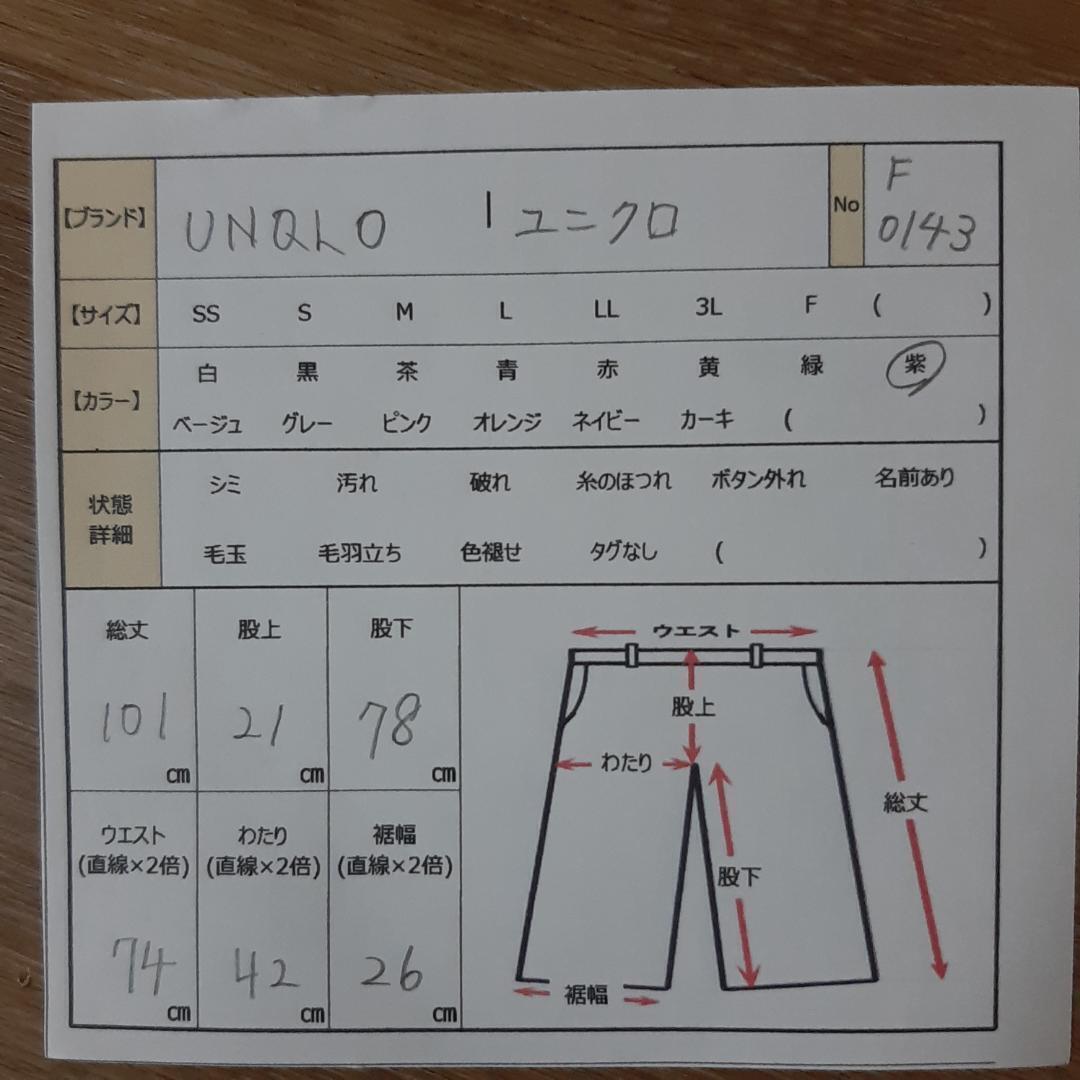 【ブランド】 UNQLO | ユニクロ No F 0143
【サイズ】 SS S M L LL 3L F ( )
【カラー】 白 黒 茶 青 赤 黄 緑 紫
ベージュ グレー ピンク オレンジ ネイビー カーキ ( )
状態
詳細
シミ 汚れ 破れ 糸のほつれ ボタン外れ 名前あり
毛玉 毛羽立ち 色褪せ タグなし ( )
総丈 股上 股下
101 cm 21 cm 78 cm
ウエスト わたり 裾幅
(直線×2倍) (直線×2倍) (直線×2倍)
74 cm 42 cm 26 cm
ウエスト
股上
わたり
総丈
股下
裾幅